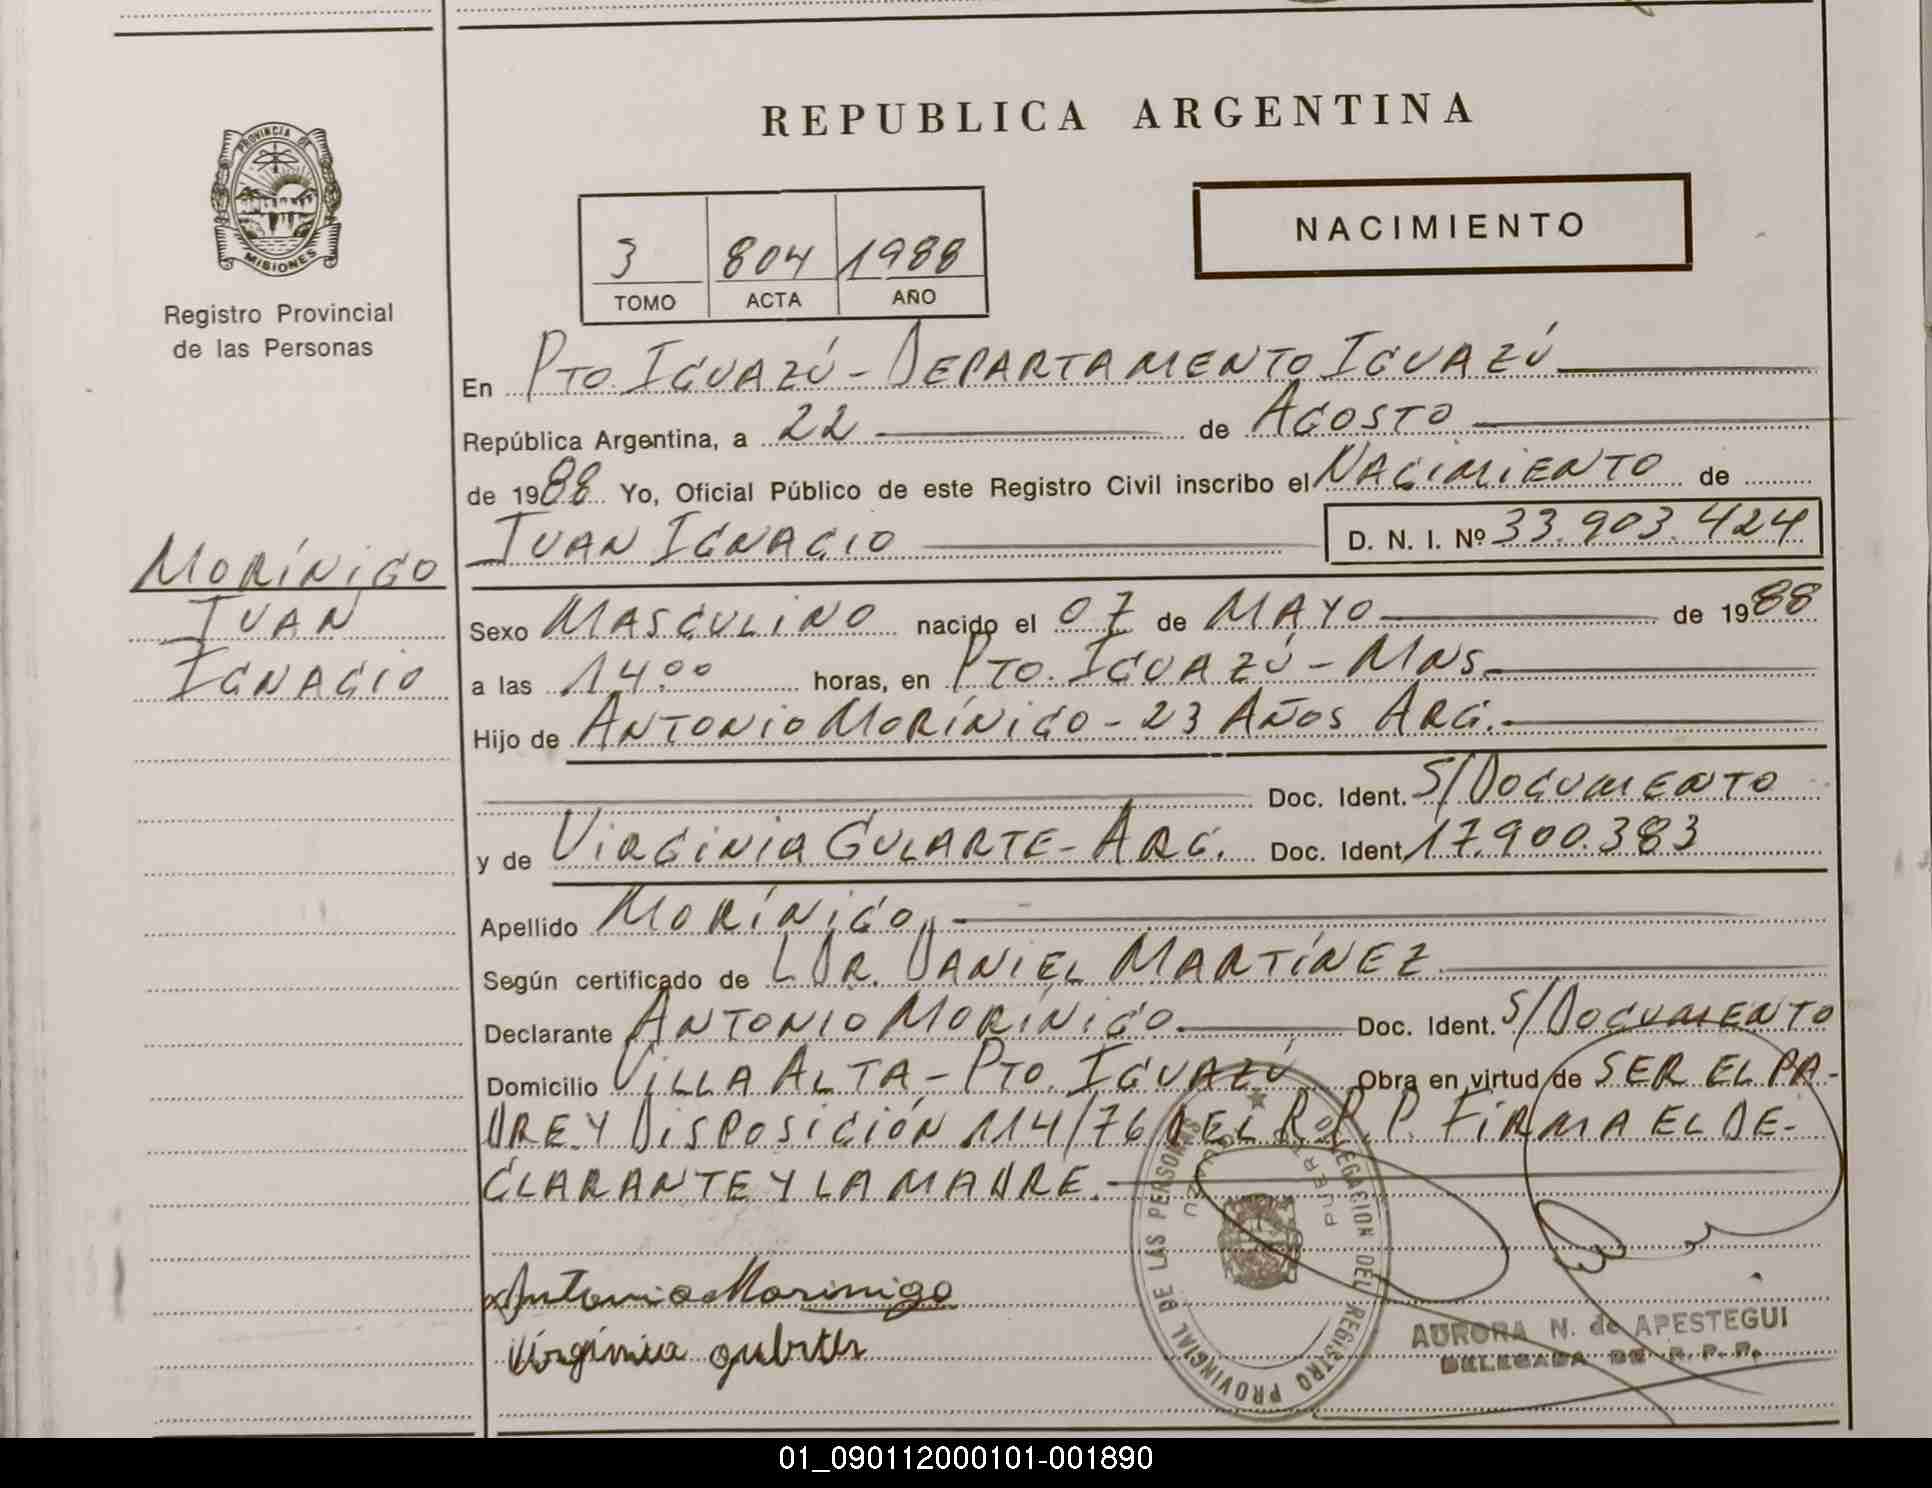 REPUBLICA ARGENTINA
PROVINCIA DE
MISIONES
Registro Provincial
de las Personas
NACIMIENTO
3 804 1988
TOMO ACTA AÑO
En PTO. IGUAZÚ - DEPARTAMENTO IGUAZÚ
República Argentina, a 22 de AGOSTO
de 1988 Yo, Oficial Público de este Registro Civil inscribo el NACIMIENTO de
JUAN IGNACIO D. N. I. Nº 33.903.424
MORÍNIGO
JUAN
IGNACIO
Sexo MASCULINO nacido el 07 de MAYO de 1988
a las 14.00 horas, en PTO. IGUAZÚ - MNS.
Hijo de ANTONIO MORÍNIGO - 23 AÑOS ARG.
Doc. Ident. S/DOCUMENTO
y de VIRGINIA GULARTE - ARG. Doc. Ident. 17.900.383
Apellido MORÍNIGO
Según certificado de DR. DANIEL MARTÍNEZ
Declarante ANTONIO MORÍNIGO. Doc. Ident. S/DOCUMENTO
Domicilio VILLA ALTA - PTO. IGUAZÚ Obra en virtud de SER EL PA-
DRE Y DISPOSICIÓN 114/76 DEL R.P.P. FIRMA EL DE-
CLARANTE Y LA MADRE.
Antonio Morinigo
Virginia
DELEGACION DEL REGISTRO PROVINCIAL DE LAS PERSONAS
PUERTO IGUAZU
AURORA N. de APESTEGUI
DELEGADA DE R. P. P.
01_090112000101-001890